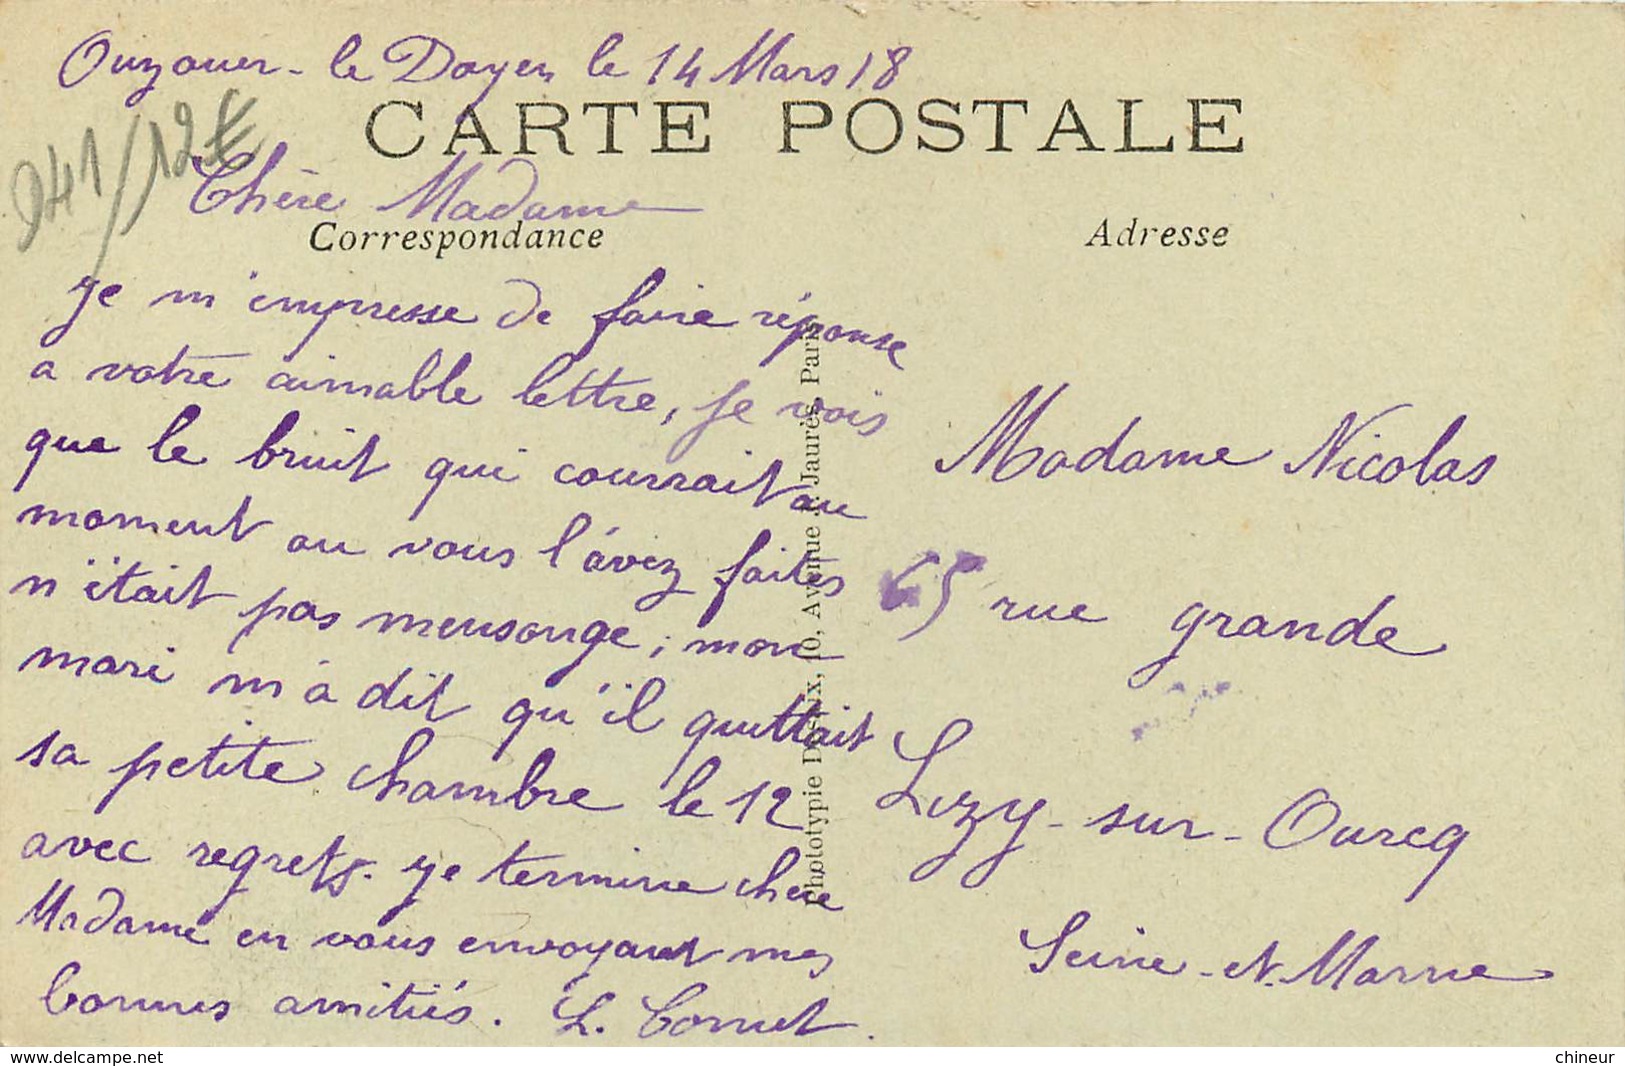 Ouzouer-le Doyen le 14 Mars 18
CARTE POSTALE
941/12€
Chère Madame
Correspondance
Adresse
je m'empresse de faire réponse
a votre aimable lettre, je vois
que le bruit qui courrait au
moment ou vous l'avez faites
n'était pas mensonge, mon
mari m'a dit qu'il quittait
sa petite chambre le 12
avec regrets. je termine chere
Madame en vous envoyant mes
bonnes amitiés. L. Cornet.
Phototypie 10, Avenue J. Jaurès, Paris
Madame Nicolas
65 rue grande
Lizy-sur-Ourcq
Seine-et-Marne
www.delcampe.net
chineur